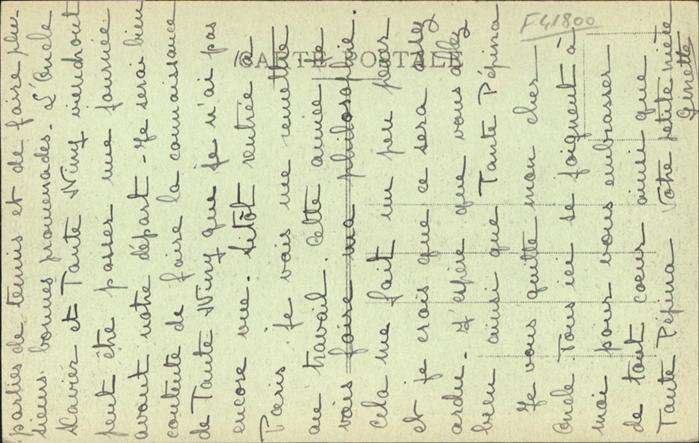 parties de tennis et de faire plu-
sieurs bonnes promenades. L'Oncle
Xavier et Tante Winy viendront
peut être passer une journée
avant notre départ - Je serai bien
contente de faire la connaissance
de Tante Winy que je n'ai pas
encore vue. Sitôt rentrée à
Paris je vais me remettre
au travail. Cette année je
vais faire ma philosophie.
cela me fait un peu peur
et je crois que ce sera assez
ardu. J'espère que vous allez
bien ainsi que Tante Pépina
Je vous quitte mon cher
Oncle Tous ici se joignent à
moi pour vous embrasser
de tout coeur ainsi que
Tante Pépina Votre petite nièce
Ginette
CARTE POSTALE
F41800